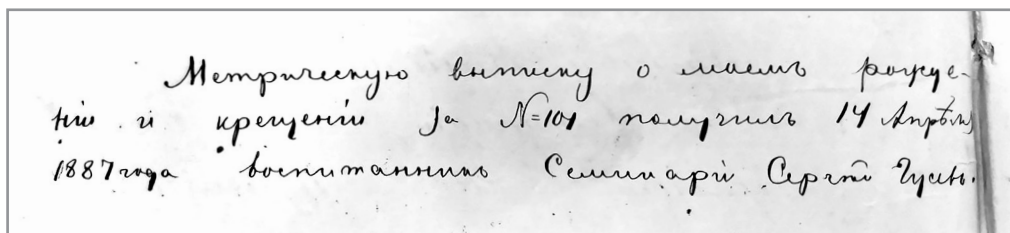 Метрическую выписку о моемъ рожде-
нiи и крещенiи за №=101 получилъ 14 Апрѣля
1887 года воспитанникъ Семинарiи Сергѣй Гусевъ.